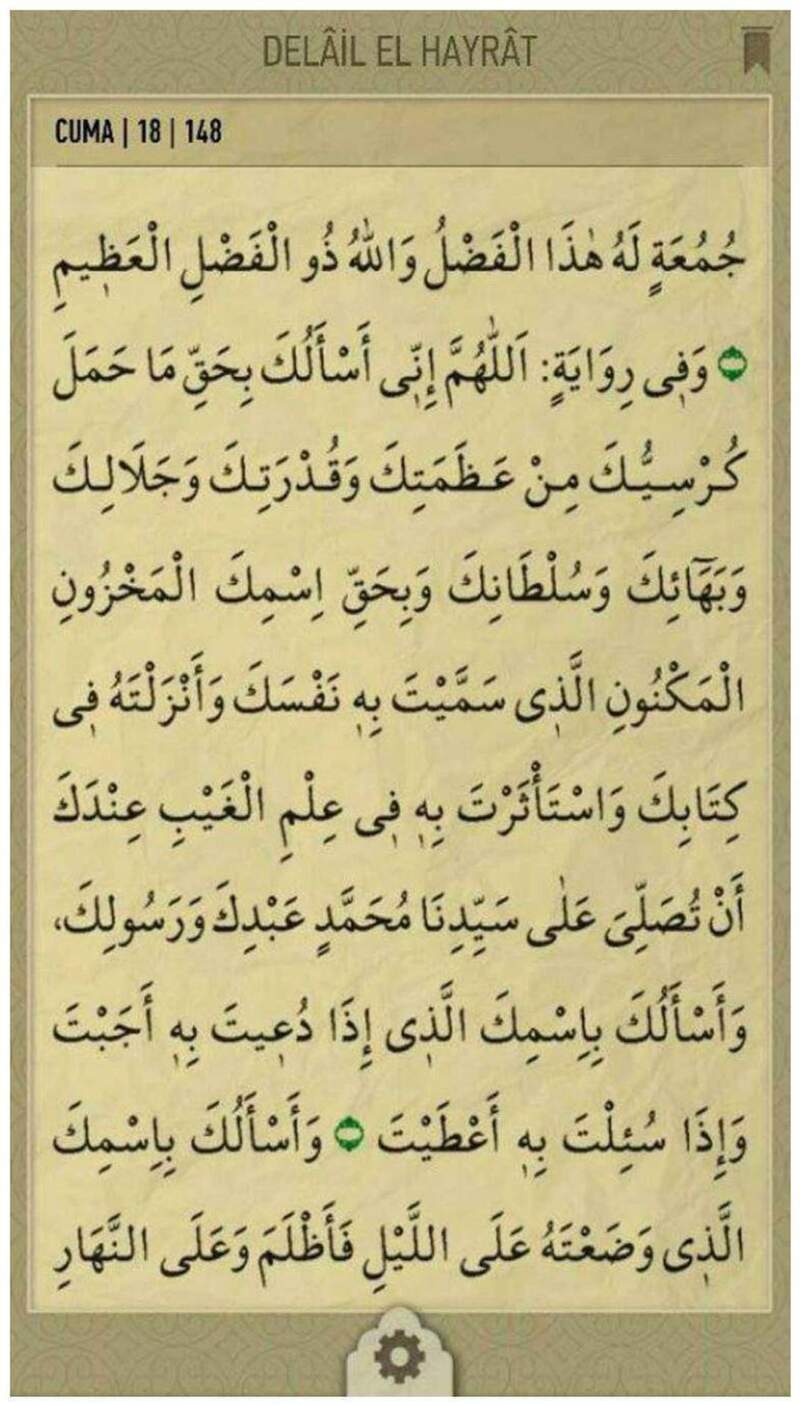 DELÂİL EL HAYRÂT
CUMA | 18 | 148
جُمُعَةٍ لَهُ هٰذَا الْفَضْلُ وَاللّٰهُ ذُو الْفَضْلِ الْعَظ۪يمِ
وَف۪ى رِوَايَةٍ: اَللّٰهُمَّ إِنّ۪ى أَسْأَلُكَ بِحَقِّ مَا حَمَلَ
كُرْسِيُّكَ مِنْ عَظَمَتِكَ وَقُدْرَتِكَ وَجَلَالِكَ
وَبَهَٓائِكَ وَسُلْطَانِكَ وَبِحَقِّ اِسْمِكَ الْمَخْزُونِ
الْمَكْنُونِ الَّذ۪ى سَمَّيْتَ بِه۪ نَفْسَكَ وَأَنْزَلْتَهُ ف۪ى
كِتَابِكَ وَاسْتَأْثَرْتَ بِه۪ ف۪ى عِلْمِ الْغَيْبِ عِنْدَكَ
أَنْ تُصَلِّىَ عَلٰى سَيِّدِنَا مُحَمَّدٍ عَبْدِكَ وَرَسُولِكَ،
وَأَسْأَلُكَ بِاِسْمِكَ الَّذ۪ى إِذَا دُع۪يتَ بِه۪ أَجَبْتَ
وَإِذَا سُئِلْتَ بِه۪ أَعْطَيْتَ وَأَسْأَلُكَ بِاِسْمِكَ
الَّذ۪ى وَضَعْتَهُ عَلَى اللَّيْلِ فَأَظْلَمَ وَعَلَى النَّهَارِ